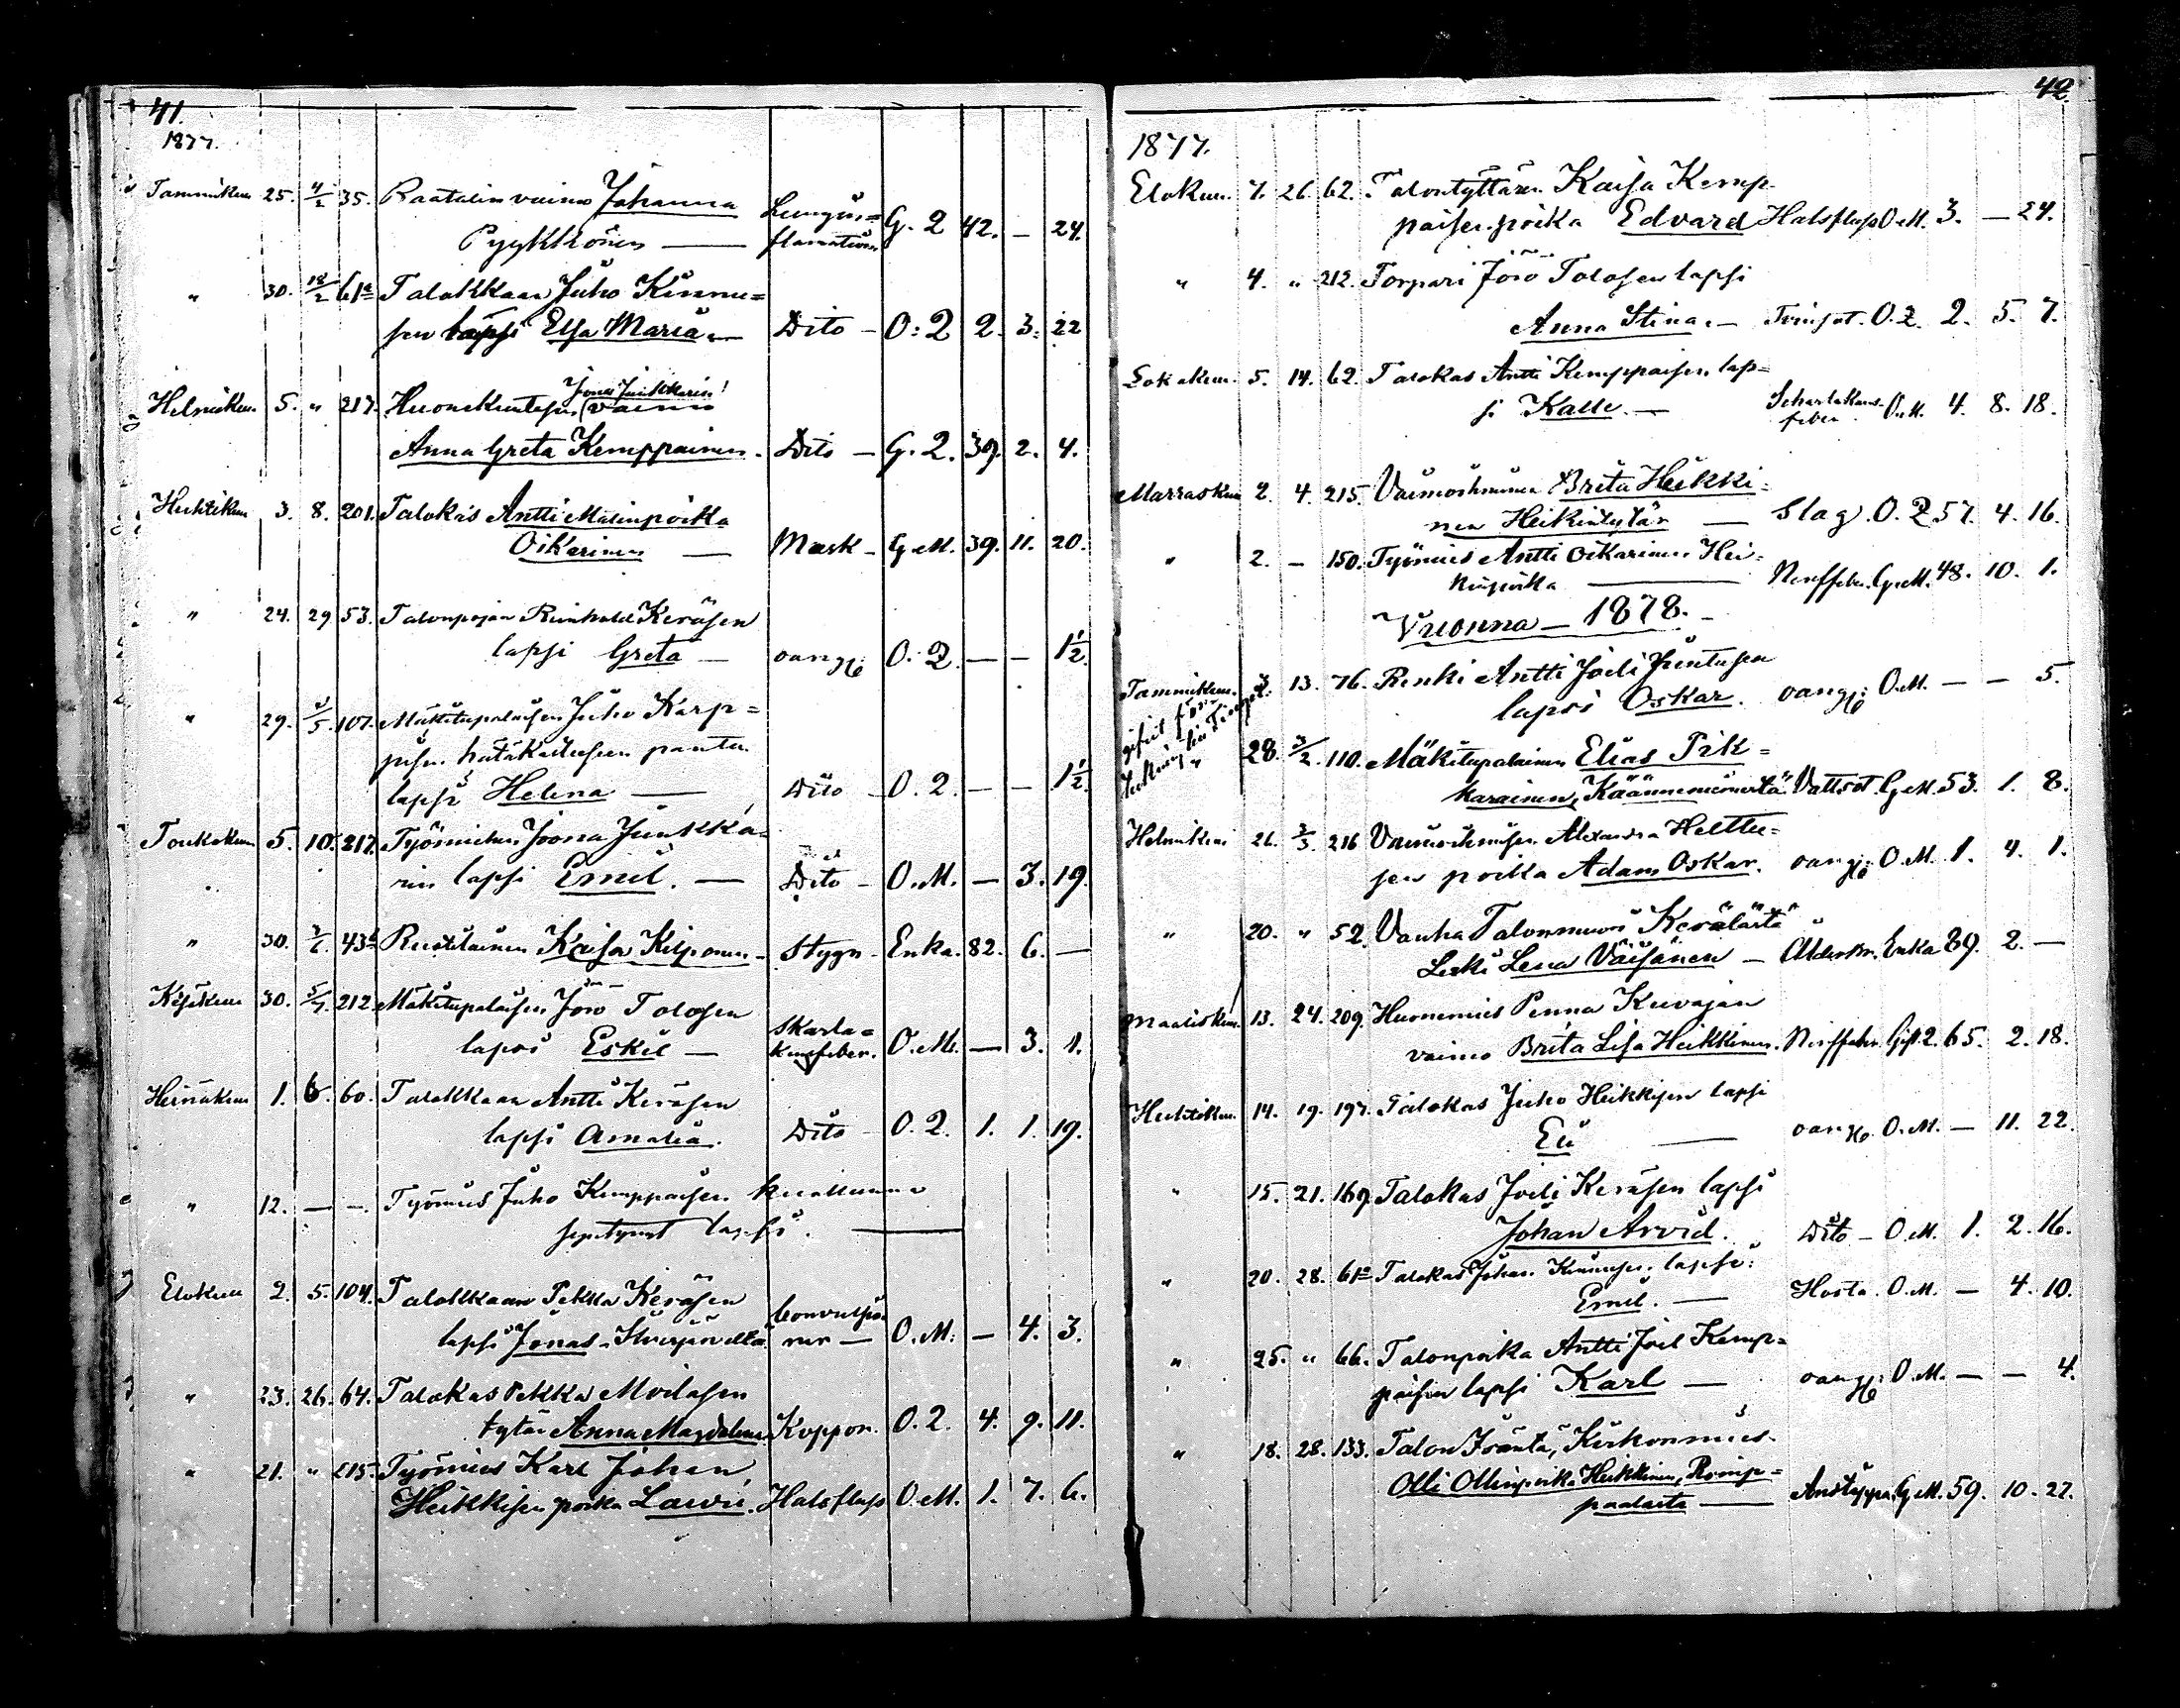 41.
1877.
Tammikuu 25. 4/2 35. Raatalin vaimo Johanna
Pyykkönen — Lungin=
flamation G. 2 42. — 24.
" 30. 18/2 61a Talokkaan Juho Kinnu=
sen lapsi Elsa Maria — Dito — O. 2 2. 3. 22
Helmikuu 5. " 217. Huonekuntasen (Jona Junkkarin) vaimo
Anna Greta Kemppainen. Dito — G. 2. 39. 2. 4.
Huhtikuu 3. 8. 201. Talokas Antti Matinpoika
Oikarinen — Mask — G. M. 39. 11. 20.
" 24. 29 53. Talonpojan Reinhold Keräsen
lapsi Greta — O. 2. — — 1 1/2
" 29. 107. Mäkitupalaisen Juho Karp=
lapsi Helena — Dito — O. 2. — — 1 1/2
Toukokuu 5. 10. 217. Työmiehen Joona Junkka=
rin lapsi Emil. — Dito — O. M. — 3. 19.
" 30. 43 Ruotilainen Kaisa Kilponen — Stygn — Enka. 82. 6. —
Kesäkuu 30. 5/7. 212 Mäkitupalaisen Jörö Tolosen
lapsi Eskil — Skarla=
kansfeber. O. M. — 3. 1.
Heinäkuu 1. 6. 60. Talokkaan Antti Keräsen
lapsi Amalia. Dito — O. 2. 1. 1. 19.
" 12. — — Työmies Juho Kemppaisen kuolluna
syntynyt lapsi. —
Elokuu 2. 5. 104. Talokkaan Pekka Keräsen
lapsi Jonas Convulsio
ner — O. M. — 4. 3.
" 23. 26. 64. Talokas Pekka Moilasen
tytär Anna Magdalena. Koppor. O. 2. 4. 9. 11.
" 21. " 215. Työmies Karl Johan
Heikkisen poika Lauri. Halsfluss O. M. 1. 7. 6.
42.
1877.
Elokuu. 7. 26. 62. Talontyttären Kaisa Kemp
paisen poika Edvard Halsfluss O. M. 3. — 24.
" 4. " 212. Torpari Jörö Tolosen lapsi
Anna Stina. — O. 2. 2. 5. 7.
Lokakuu. 5. 14. 62. Talokas Antti Kemppaisen lap=
si Kalle. — Scharlakans
feber. O. M. 4. 8. 18.
Marraskuu 2. 4. 215. Vaimoihminen Brita Heikki=
nen Heikintytär — Slag. O. 2 57. 4. 16.
" 2. — 150. Työmies Antti Oikarinen Hei=
kinpoika — Nerffeber. G. M. 48. 10. 1.
Vuonna — 1878. —
Tammikuu. 2. 13. 76. Renki Antti Joeli Juntusen
lapsi Oskar. O. M. — — 5.
" 28. 3/2. 110. Mäkitupalainen Elias Pik=
karainen, Käännemiömestä Vattsot. G. M. 53. 1. 8.
Helmikuu 26. 3/3. 216 Vaimoihmisen Alexandra Helttu=
sen poika Adam Oskar. O. M. 1. 4. 1.
" 20. " 52. Vanha Talonmuori Kerälästä
Leski Lena Väisänen — Ålderdom. Enka 89. 2. —
Maaliskuu. 13. 24. 209. Huonemies Penna Kuvajan
vaimo Brita Lisa Heikkinen. Nerffeber Gift 2. 65. 2. 18.
Huhtikuu. 14. 19. 197. Talokas Juho Heikkisen lapsi
Eli — O. M. — 11. 22.
" 15. 21. 169. Talokas Joeli Keräsen lapsi
Johan Arvid. Dito — O. M. 1. 2. 16.
" 20. 28. 61a Talokas Johan Kinnusen lapsi:
Emil. — Hosta. O. M. — 4. 10.
" 25. " 66. Talonpoika Antti Joel Kemp=
paisen lapsi Karl — O. M. — — 4.
" 18. 28. 133. Talon Isäntä, Kirkonmies
Olli Ollinpoika Heikkinen, Romp=
palasta — G. M. 59. 10. 27.